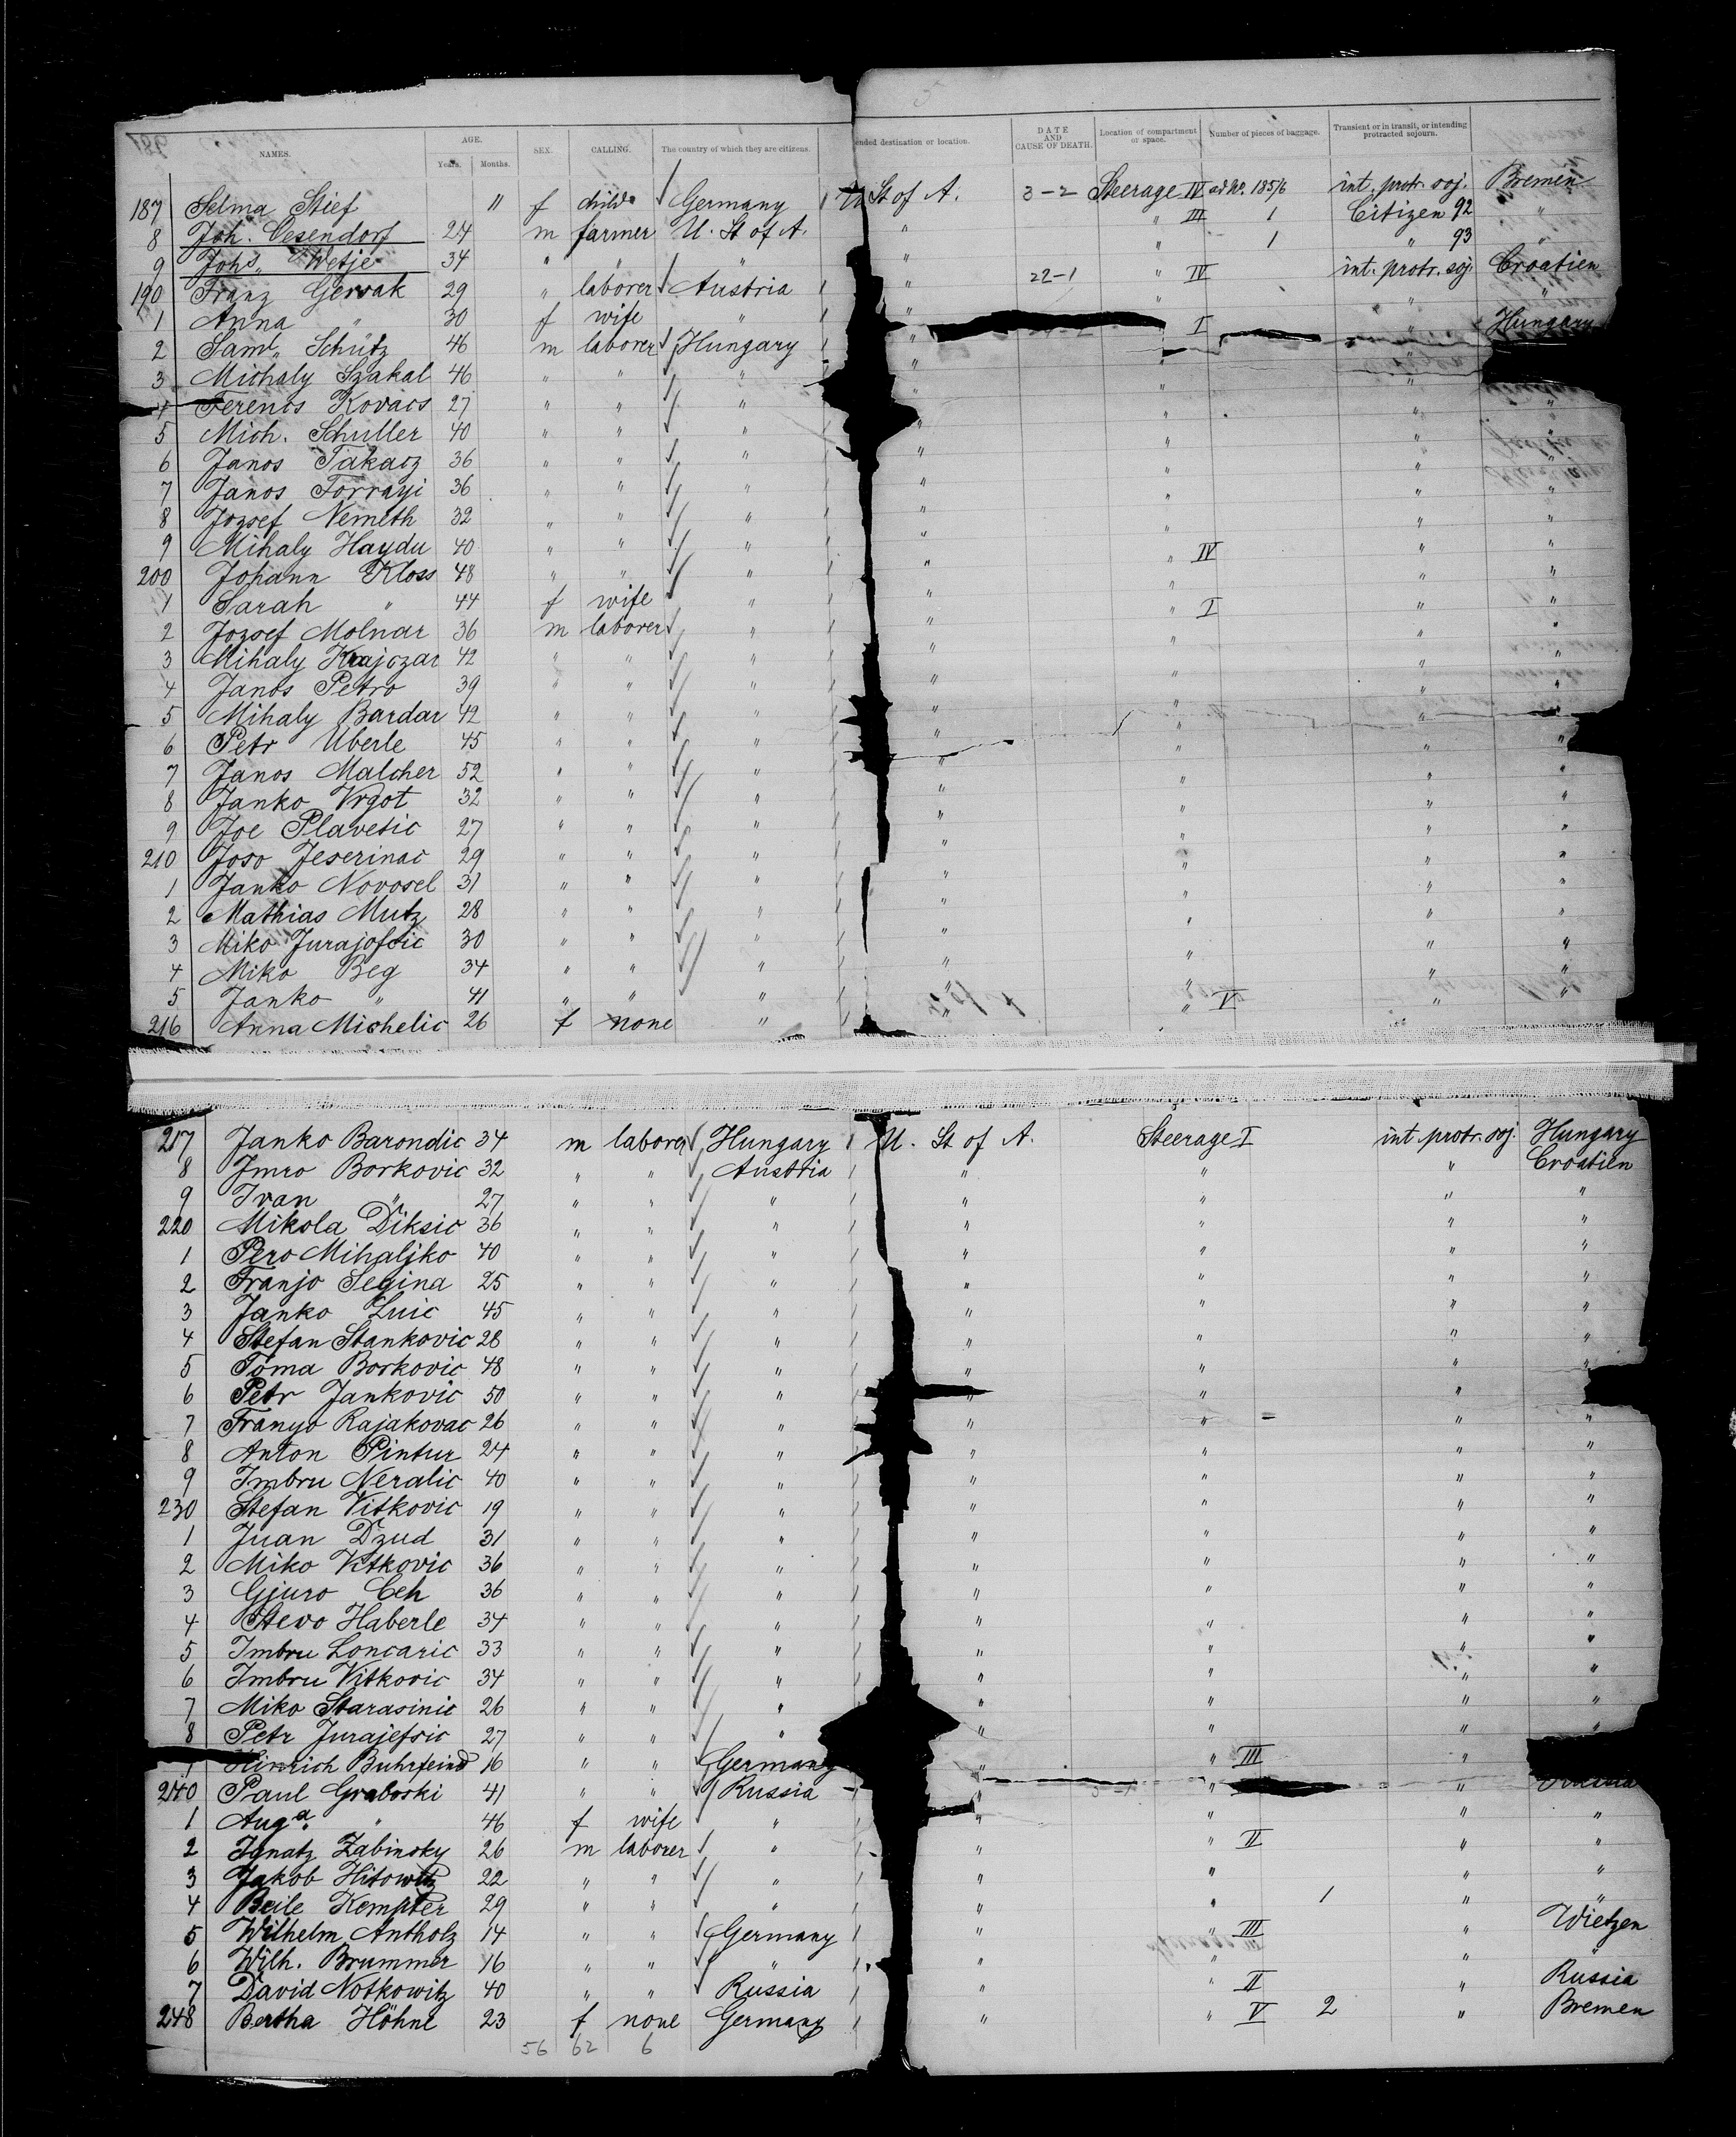 NAMES. AGE. Years. Months. SEX. CALLING. The country of which they are citizens. ended destination or location. DATE AND CAUSE OF DEATH. Location of compartment or space. Number of pieces of baggage. Transient or in transit, or intending protracted sojourn.
187 Selma Stief " f child Germany U St of A. 3-2 Steerage IV ad No. 185/6 int. protr. soj. Bremen
8 Joh. Oesendorf 24 m farmer U. St of A. " " III 1 Citizen 92 "
9 Johs. Wetje 34 " " " " " 1 " 93 "
190 Franz Gersak 29 " laborer Austria " 22-1 " IV int. protr. soj. Croatien
1 Anna " 30 f wife " " " " "
2 Saml. Schütz 46 m laborer Hungary " I " Hungary
3 Michaly Szakal 46 " " " " " "
4 Ferencs Kovacs 27 " " " " " " "
5 Mich. Schuller 40 " " " " " " "
6 Janos Takacz 36 " " " " " " "
7 Janos Torrayi 36 " " " " " " "
8 Jozsef Nemeth 32 " " " " " " "
9 Mihaly Haydu 40 " " " " " " "
200 Johann Kloss 48 " " " " " IV " "
1 Sarah " 44 f wife " " " " "
2 Jozsef Molnar 36 m laborer " " " I " "
3 Mihaly Krajczar 42 " " " " " " "
4 Janos Petro 39 " " " " " " "
5 Mihaly Bardar 42 " " " " " " "
6 Petr Uberle 45 " " " " " " "
7 Janos Malcher 52 " " " " " " "
8 Janko Vrgot 32 " " " " " " "
9 Joe Plavetic 27 " " " " " " "
210 Joso Jeserinac 29 " " " " " " "
1 Janko Novosel 31 " " " " " " "
2 Mathias Mutz 28 " " " " " " "
3 Miko Jurajofsic 30 " " " " " " "
4 Miko Beg 34 " " " " " " "
5 Janko " 41 " " " " " " "
216 Anna Michelic 26 f none " " " V " "
217 Janko Barondic 34 m laborer Hungary U. St of A. Steerage I int. protr. soj. Hungary
8 Jmro Borkovic 32 " " Austria " " " Croatien
9 Ivan " 27 " " " " " " "
220 Mikola Diksic 36 " " " " " " "
1 Pero Mihaljko 40 " " " " " " "
2 Franjo Segina 25 " " " " " " "
3 Janko Luic 45 " " " " " " "
4 Stefan Stankovic 28 " " " " " " "
5 Toma Borkovic 48 " " " " " " "
6 Petr Jankovic 50 " " " " " "
7 Franyo Rajakovac 26 " " " " " " "
8 Anton Pintur 24 " " " " " " "
9 Imbru Neralic 40 " " " " " " "
230 Stefan Vitkovic 19 " " " " " " "
1 Juan Dzud 31 " " " " " " "
2 Miko Vitkovic 36 " " " " " " "
3 Gjuro Ceh 36 " " " " " " "
4 Stevo Haberle 34 " " " " " " "
5 Imbru Loncaric 33 " " " " " " "
6 Imbru Vitkovic 34 " " " " " " "
7 Miko Starasinic 26 " " " " " " "
8 Petr Jurajefsic 27 " " " " " " "
Hinrich Buhrfeind 16 " " Germany " " III "
240 Paul Graboski 41 " " Russia " " " Russia
1 Auga. " 46 f wife " " " " "
2 Ignatz Zabinsky 26 m laborer " " " II " "
3 Jakob Hitowitz 22 " " " " " " "
4 Beile Kempter 29 " " " " " 1 " "
5 Wilhelm Antholz 14 " " Germany " " III " Wietzen
6 Wilh. Brummer 16 " " " " " " "
7 David Notkowitz 40 " " Russia " " II " Russia
248 Bertha Höhne 23 f none Germany " " V 2 " Bremen
56 62 6